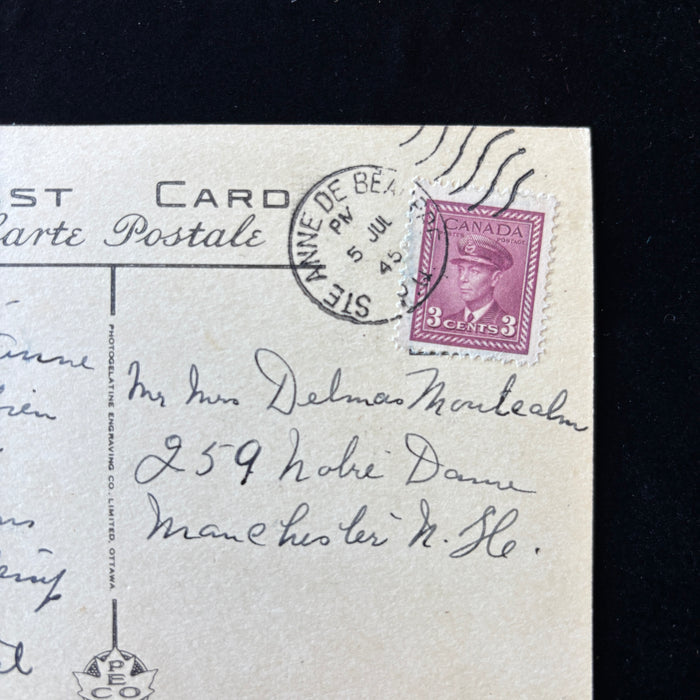 ST CARD
Carte Postale
STE ANNE DE BEA
PM
5 JUL
45
CANADA
POSTES POSTAGE
3 CENTS 3
PHOTOGELATINE ENGRAVING CO. LIMITED, OTTAWA
Mr Mrs Delmas Montcalm
259 Notre Dame
Manchester N. He.
anne
PECO